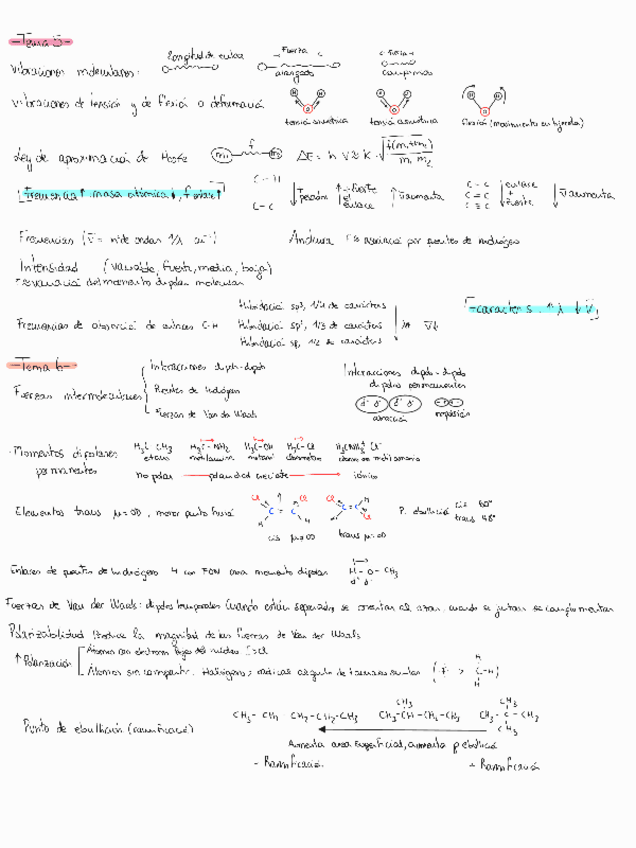 -Tema 5-
Vibraciones moleculares:
Longitud de enlace
Fuerza
alargados
Fuerza
comprimidos
Vibraciones de tensión y de flexión o deformación
tensión simétrica
tensión asimétrica
flexión (movimiento en tijereta)
Ley de aproximación de Hooke
m1 f m2
ΔE = h ν
Frecuencia ↑ masa atómica ↓, f enlace ↑
C-H
C-C
↑ ν̄ aumenta
C-C
C=C
C≡C
enlace
+
fuerte
ν̄ aumenta
Frecuencias (ν̄ = nº de ondas 1/λ cm⁻¹)
Anchura
asociación por puentes de hidrógeno
Intensidad (variable, fuerte, media, baja)
variación del momento dipolar molecular
Frecuencias de absorción de enlaces C-H
Hibridación sp³, 1/4 de carácter s
Hibridación sp², 1/3 de carácter s
Hibridación sp, 1/2 de carácter s
ν̄↓
↑ carácter s, ↑λ ↓ν̄
-Tema 6-
Fuerzas intermoleculares
Interacciones dipolo-dipolo
Puentes de hidrógeno
Fuerzas de Van der Waals
Interacciones dipolo-dipolo
dipolos permanentes
atracción
repulsión
Momentos dipolares
permanentes
H3C CH3
etano
H3C-NH2
metilamina
H3C-OH
metanol
H3C-Cl
clorometano
H3CNH3⁺ Cl⁻
no polar
polaridad creciente
iónico
Elementos trans μ=0D, menor punto fusión
Cl Cl
C = C
H H
cis
Cl H
C = C
H Cl
trans μ=0D
P. ebullición
cis 60°
trans 48°
Enlaces de puentes de hidrógeno H con FON
momento dipolar
H-O-CH3
δ⁺ δ⁻
Fuerzas de Van der Waals: dipolos temporales. Cuando están separados se orientan al azar, cuando se juntan se conglomeran
Polarizabilidad
la magnitud de las fuerzas de Van der Waals
↑ Polarización
Átomos con electrones lejos del núcleo I>Cl
Átomos sin compartir. Halógenos y
de tamaño similar
(F > C-H)
Punto de ebullición (ramificación)
CH3-CH2-CH2-CH2-CH3
CH3
CH3-CH-CH2-CH3
CH3
CH3-C-CH3
CH3
Aumenta area superficial, aumenta p. ebullición
- Ramificación
+ Ramificación